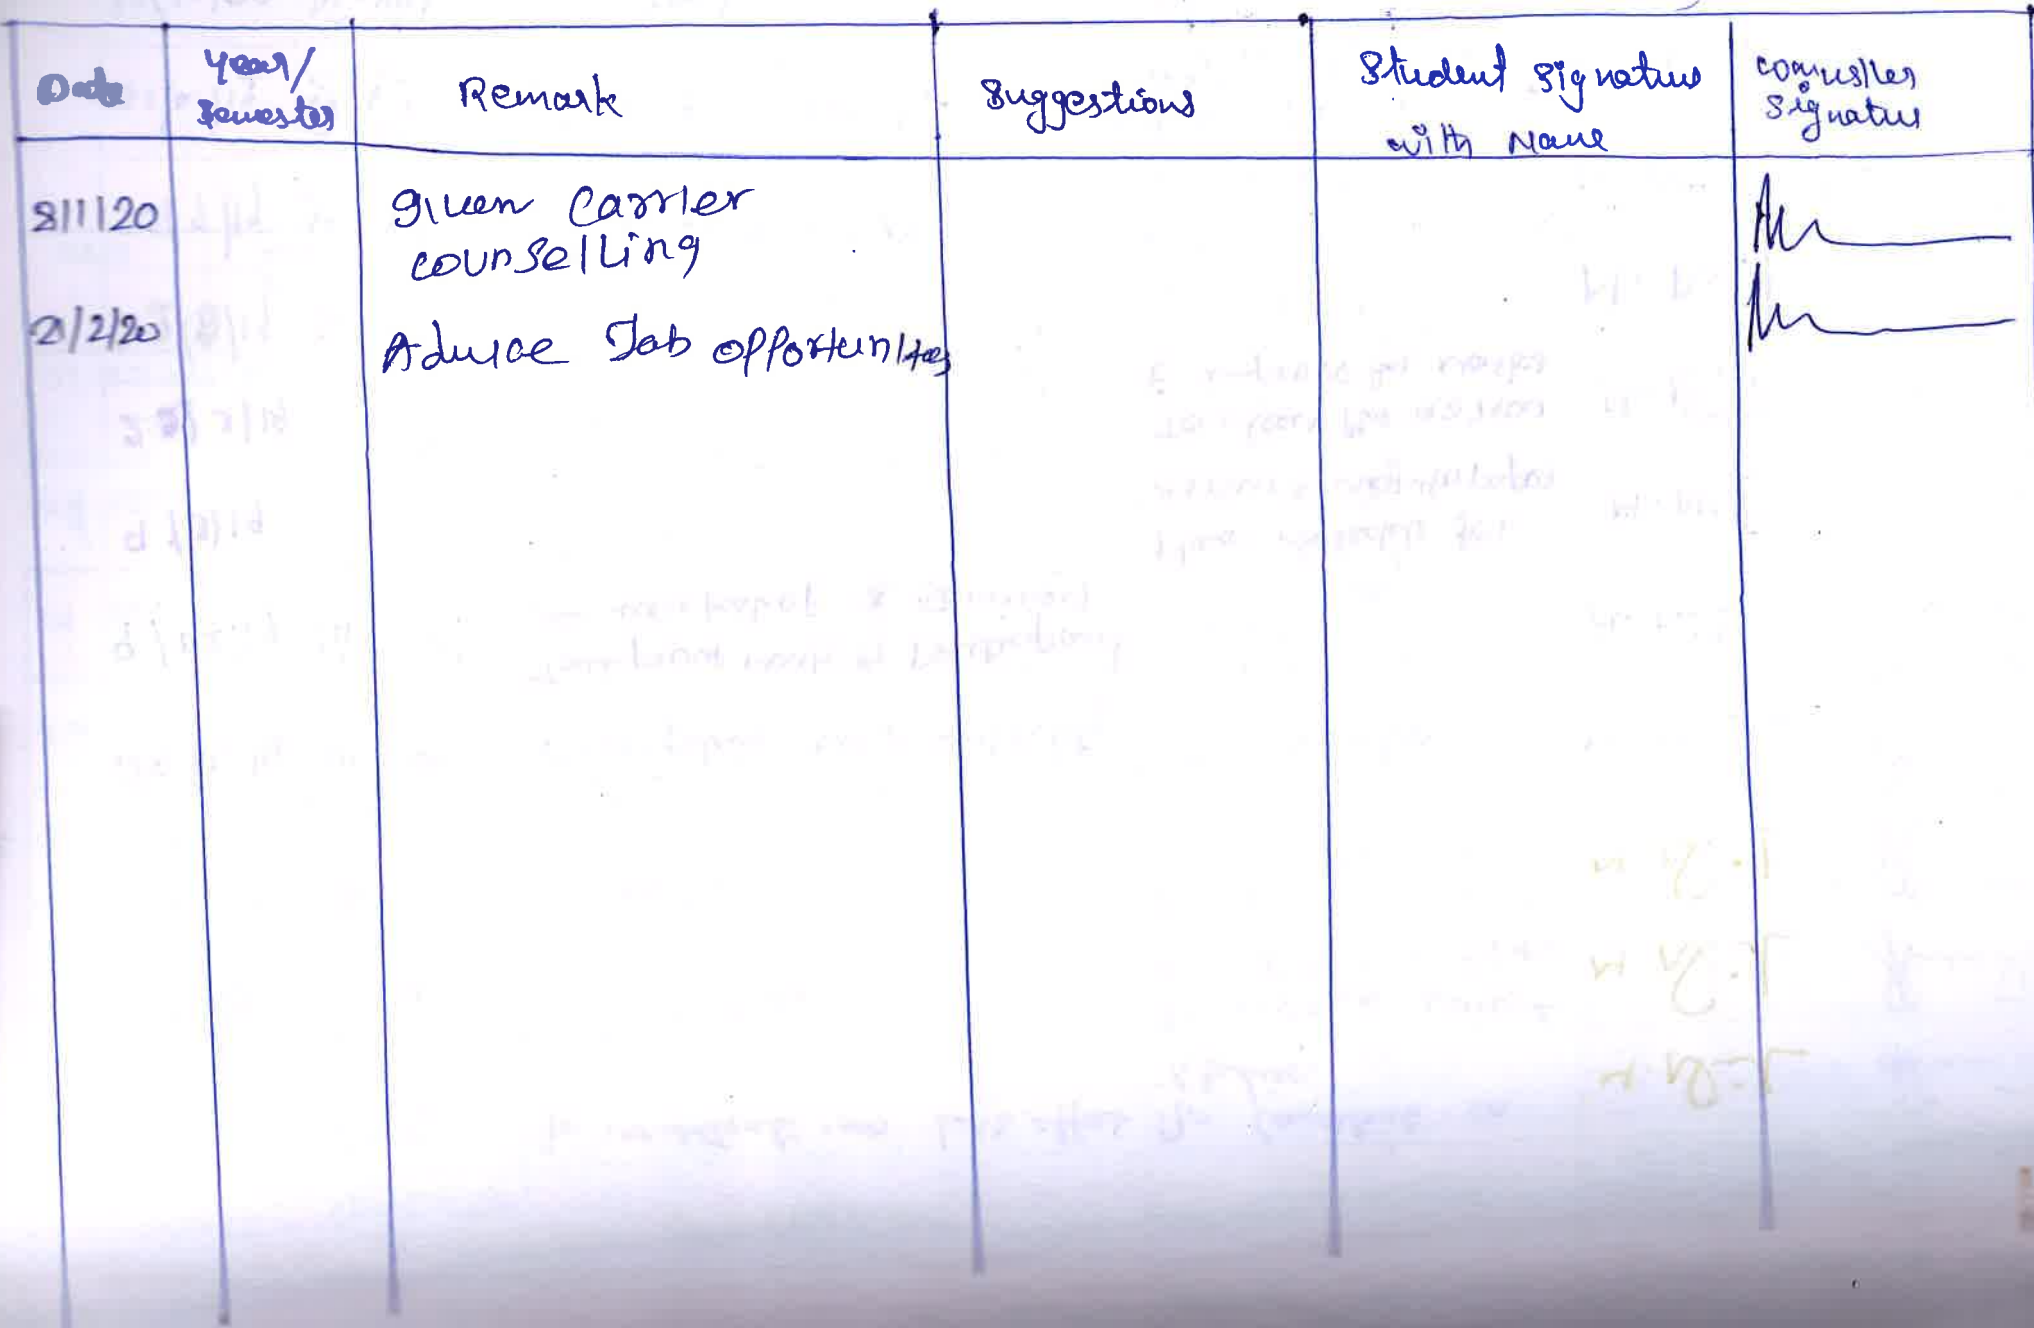 Date
Year/
Semester
Remark
Suggestions
Student Signature
with Name
Counsller
Signature
8/1/20
given Carrier
counselling
21/2/20
Advice Job opportunities